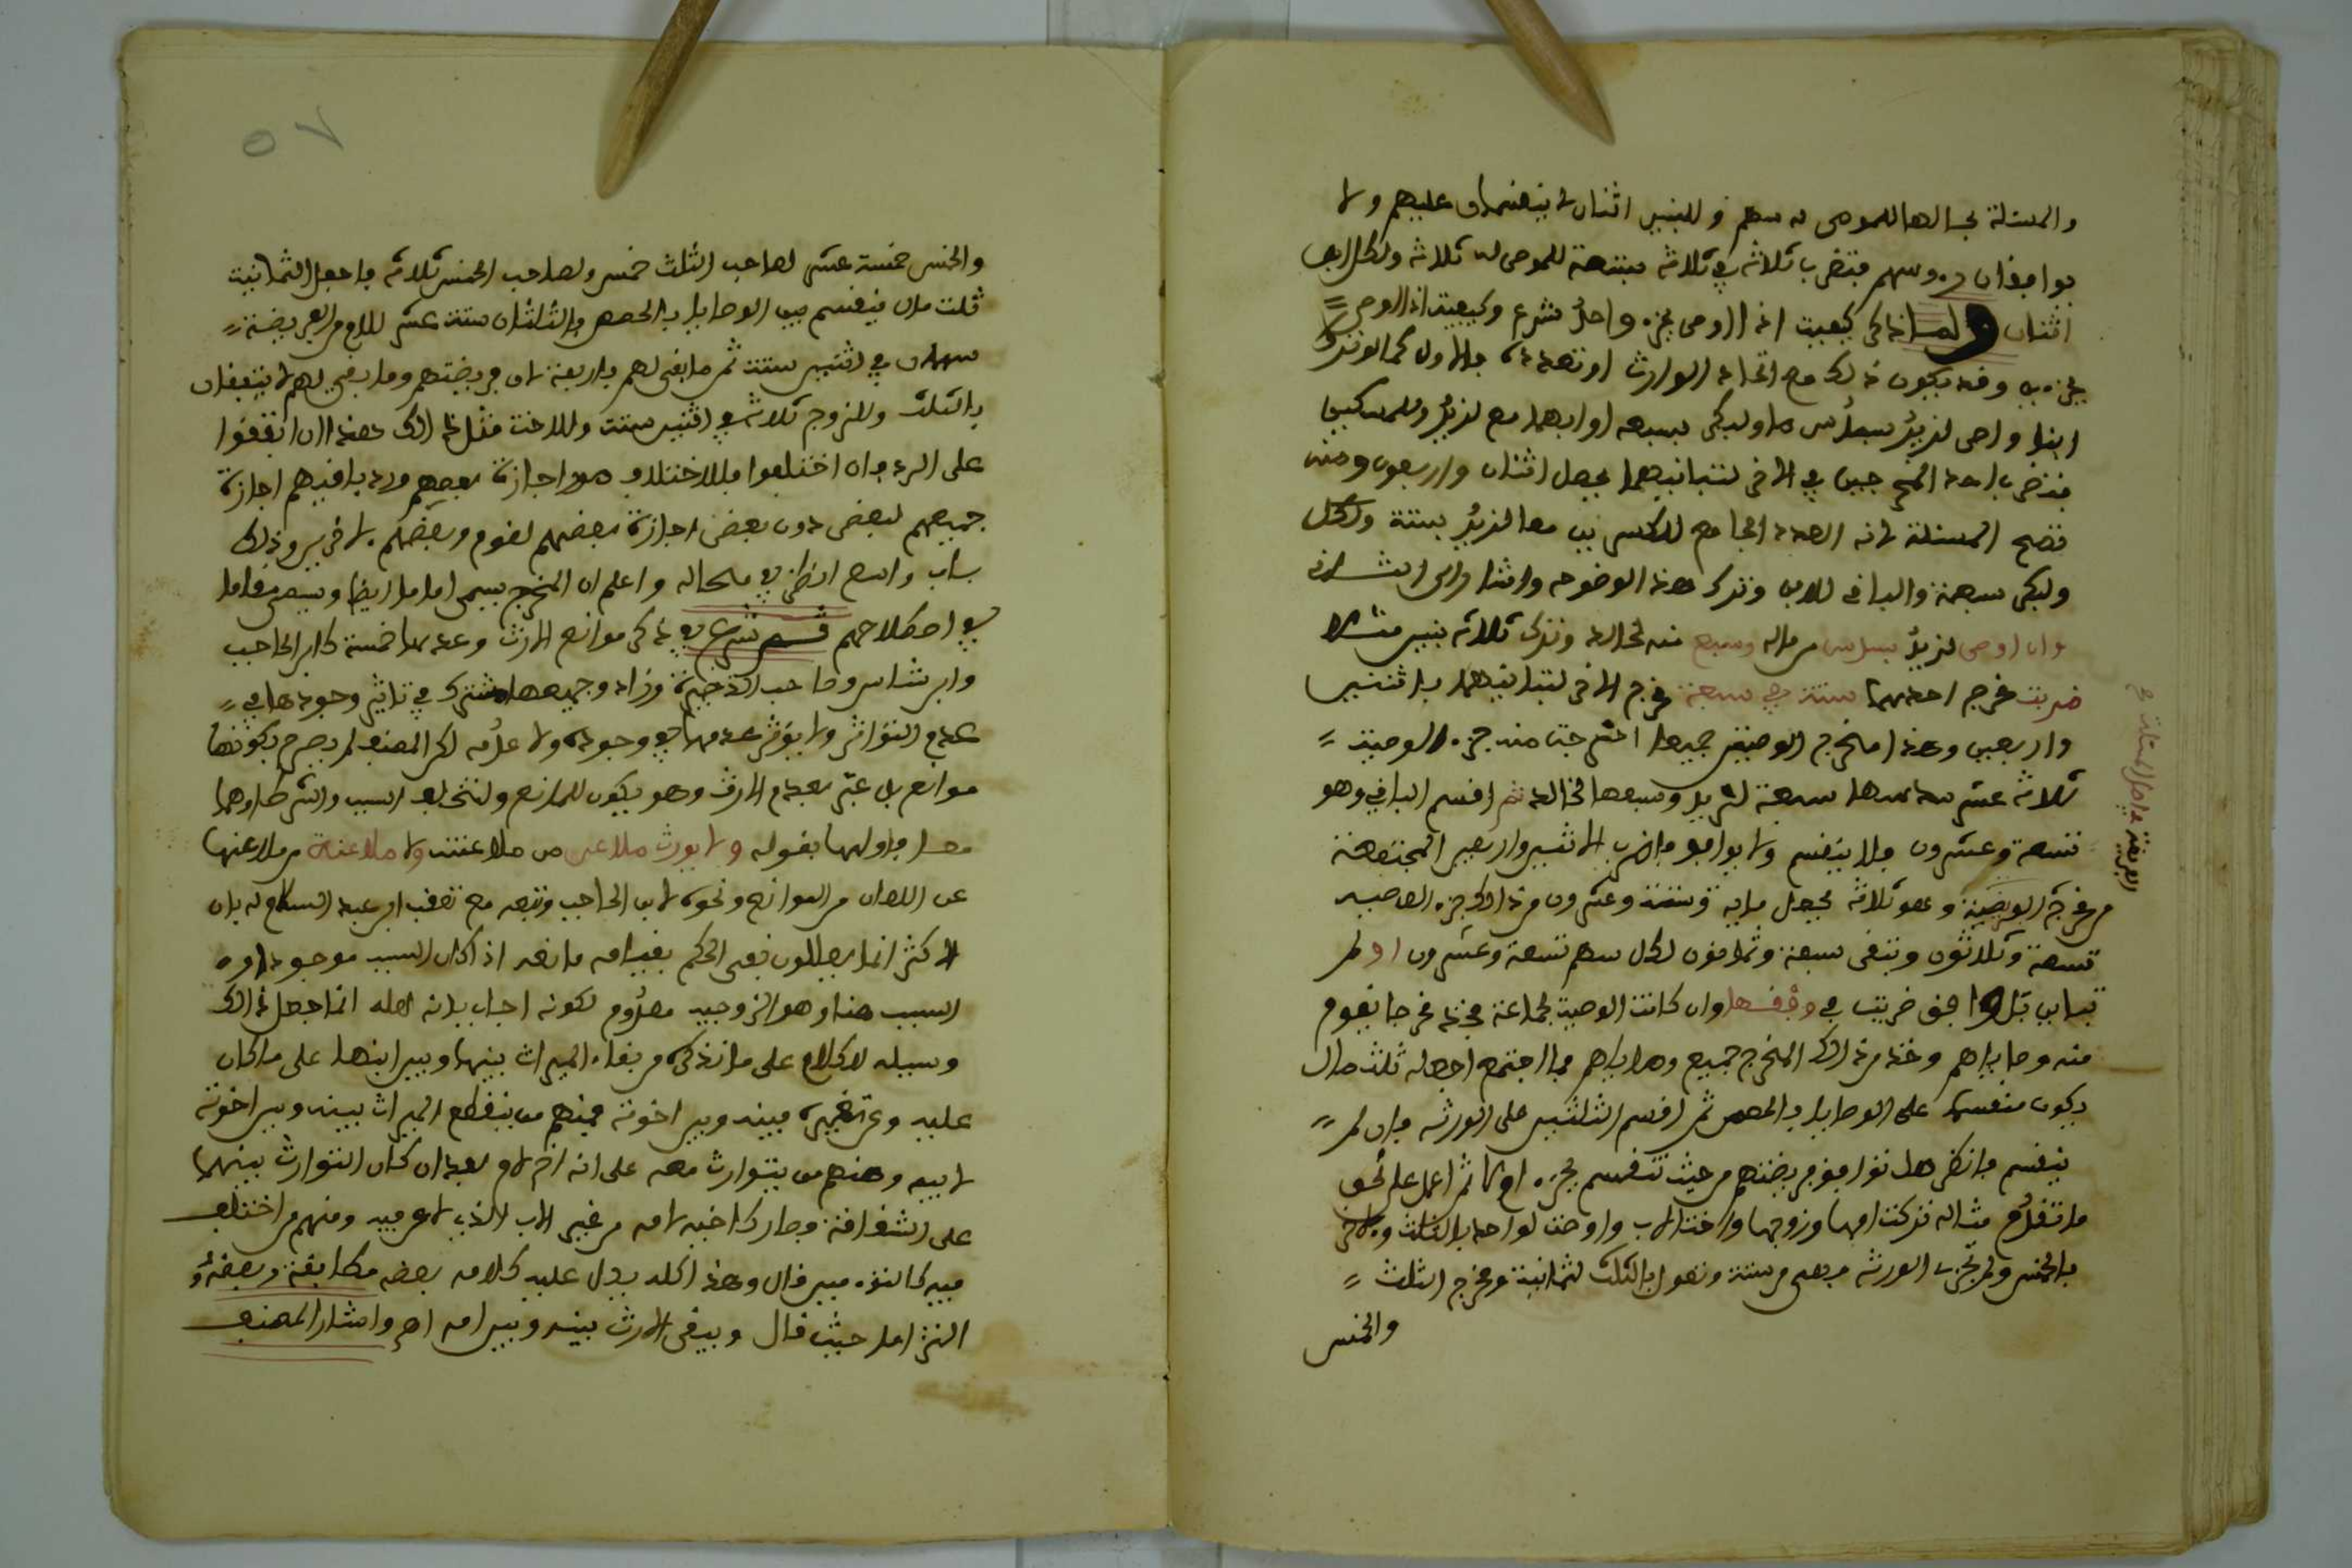 والمسئلة بحالها للموصى له سهم وللبنين اثنان لا ينقسمان عليهم ولا
يوافقان رءوسهم فتضرب ثلاثة في ثلاثة بتسعة للموصى له ثلاثة ولكل ابن
اثنان ولما ذكر كيفية اذا اوصى بجزء واحد شرع في كيفية اذا اوصى
بجزءين وقد يكون ذلك مع اتحاد الوارث او تعدده فالاول كما لو ترك
ابنا واوصى لزيد بسدس ماله ولبكر بسبعه او ابهما مع لزيد وللمساكين
فتضرب احد المخرجين في الآخر لتباينهما يحصل اثنان واربعون ومنه
تصح المسئلة لانه العدد الجامع للكسرين معا لزيد ستة ولكل
ولبكر سبعة والباقي للابن وترك هذه لوضوحه والى الثاني اشار
وان اوصى لزيد بسدس من ماله وسبع منه لخالد وترك ثلاثة بنين مثلا
ضربت مخرج احدهما ستة في سبعة مخرج الآخر لتباينهما باثنين
واربعين وهذا مخرج الوصيتين جميعا اخرجت منه جزء الوصية
ثلاثة عشر سدسها سبعة لزيد وسبعها لخالد ثم اقسم الباقي وهو
تسعة وعشرون فلا ينقسم ولا يوافق فاضرب الاثنين واربعين المجتمعة
من مخرج الفريضة وهو ثلاثة يحصل ماية وستة وعشرون من ذلك جزء الوصية
تسعة وثلاثون وتبقى سبعة وثمانون لكل سهم تسعة وعشرون اولم
تباين بل وافق ضربت في وفقها وان كانت الوصية لجماعة فخذ مخرجا يقوم
منه وصاياهم وخذ من ذلك المخرج جميع وصاياهم فما اجتمع اجعله ثلث مال
يكون منقسما على الوصايا بالحصص ثم اقسم الثلثين على الورثة فان لم
ينقسم فانظر هل توافق فريضتهم من حيث تنقسم بجزء او لا ثم اعمل على نحو
ما تقدم مثاله تركت امها وزوجها واختا لاب واوصت لواحد بالثلث والآخر
بالخمس ولم تجز الورثة فهي من ستة وتعول بالثلث لثمانية ومخرج الثلث
والخمس
الفريضة
٥٧
والخمس خمسة عشر لصاحب الثلث خمس ولصاحب الخمس ثلاثة فاجعل الثمانية
ثلث مال فينقسم بين الوصايا بالحصص والثلثان ستة عشر للام من الفريضة
سهمان في اثنين ستة ثم ما بقي لهم باربعة لان فريضتهم وما بقي لهم لا يتفقان
بالثلث وللزوج ثلاثة في اثنين ستة وللاخت مثل ذلك هذا ان اتفقوا
على الرد وان اختلفوا فللاختلاف صور اجازة بعضهم ورد باقيهم اجازة
جميعهم لبعض دون بعض اجازة بعضهم لقوم وبعضهم لآخرين وذلك
باب واسع انظره في محاله واعلم ان المخرج يسمى اماما ايضا ويسمى مقاما
في اصطلاحهم قسم شرع في ذكر موانع الارث وعدها خمسة كابن الحاجب
وابن شاس وصاحب الذخيرة وزاد وجميعها مشترك في تاثير وجودها في
عدم التوارث ولا يؤثر عدمها في وجوده ولا عدمه لكن المصنف لم يصرح بكونها
موانع بل عبر بعدم الارث وهو يكون للمانع ولتخلف السبب والشرط اوهما
معا فاولها بقوله ولا يورث ملاعن من ملاعنة ولا ملاعنة من ملاعنها
عن اللعان من الموانع ونحوه لابن الحاجب وتبعه مع تعقب ابن عبد السلام له بان
الاكثر انما يعللون نفي الحكم بقيام مانعه اذا كان السبب موجودا و
السبب هنا وهو الزوجية معدوم لكونه اجاب بانه لعله انما جعل ذلك
وسيلة للكلام على ما نذكره من بقاء الميراث بينها وبين ابنها على ما كان
عليه وعن تغييره بينه وبين اخوته فمنهم من ينقطع الميراث بينه وبين اخوته
لابيه ومنهم من يتوارث معه على انه اخ لام بعد ان كان التوارث بينهما
على الشقاقة وصار كاخيه لامه من غير الاب الذي لاعن فيه ومنهم من اختلف
فيه كالتوءمين قال وهذا كله يدل عليه كلامه بعضه مطابقة وبعضه و
التزاما حيث قال ويبقى الارث بينه وبين امه اهـ واشار المصنف